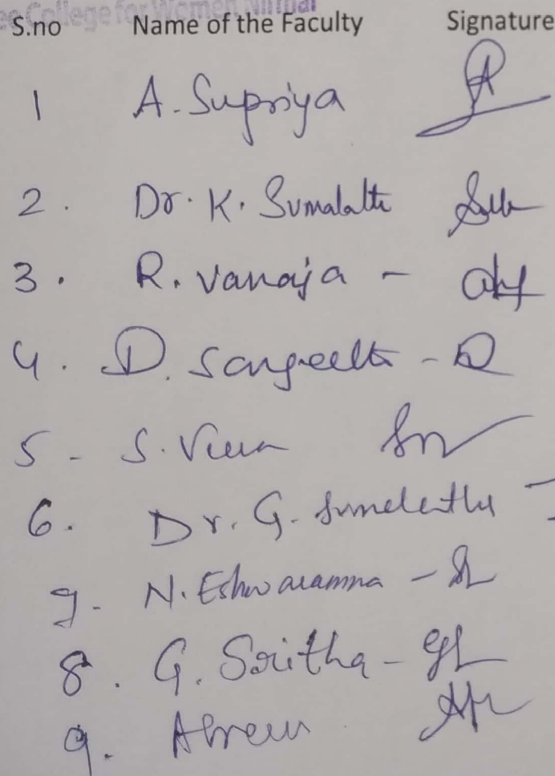 ee College for Women Nirmal
S.no Name of the Faculty Signature
1 A. Supriya
2. Dr. K. Sumalatha
3. R. Vanaja -
4. D. Sangeetha -
5 - S. Veena
6. Dr. G. Sumalatha -
7. N. Eshwaramma -
8. G. Saritha -
9.